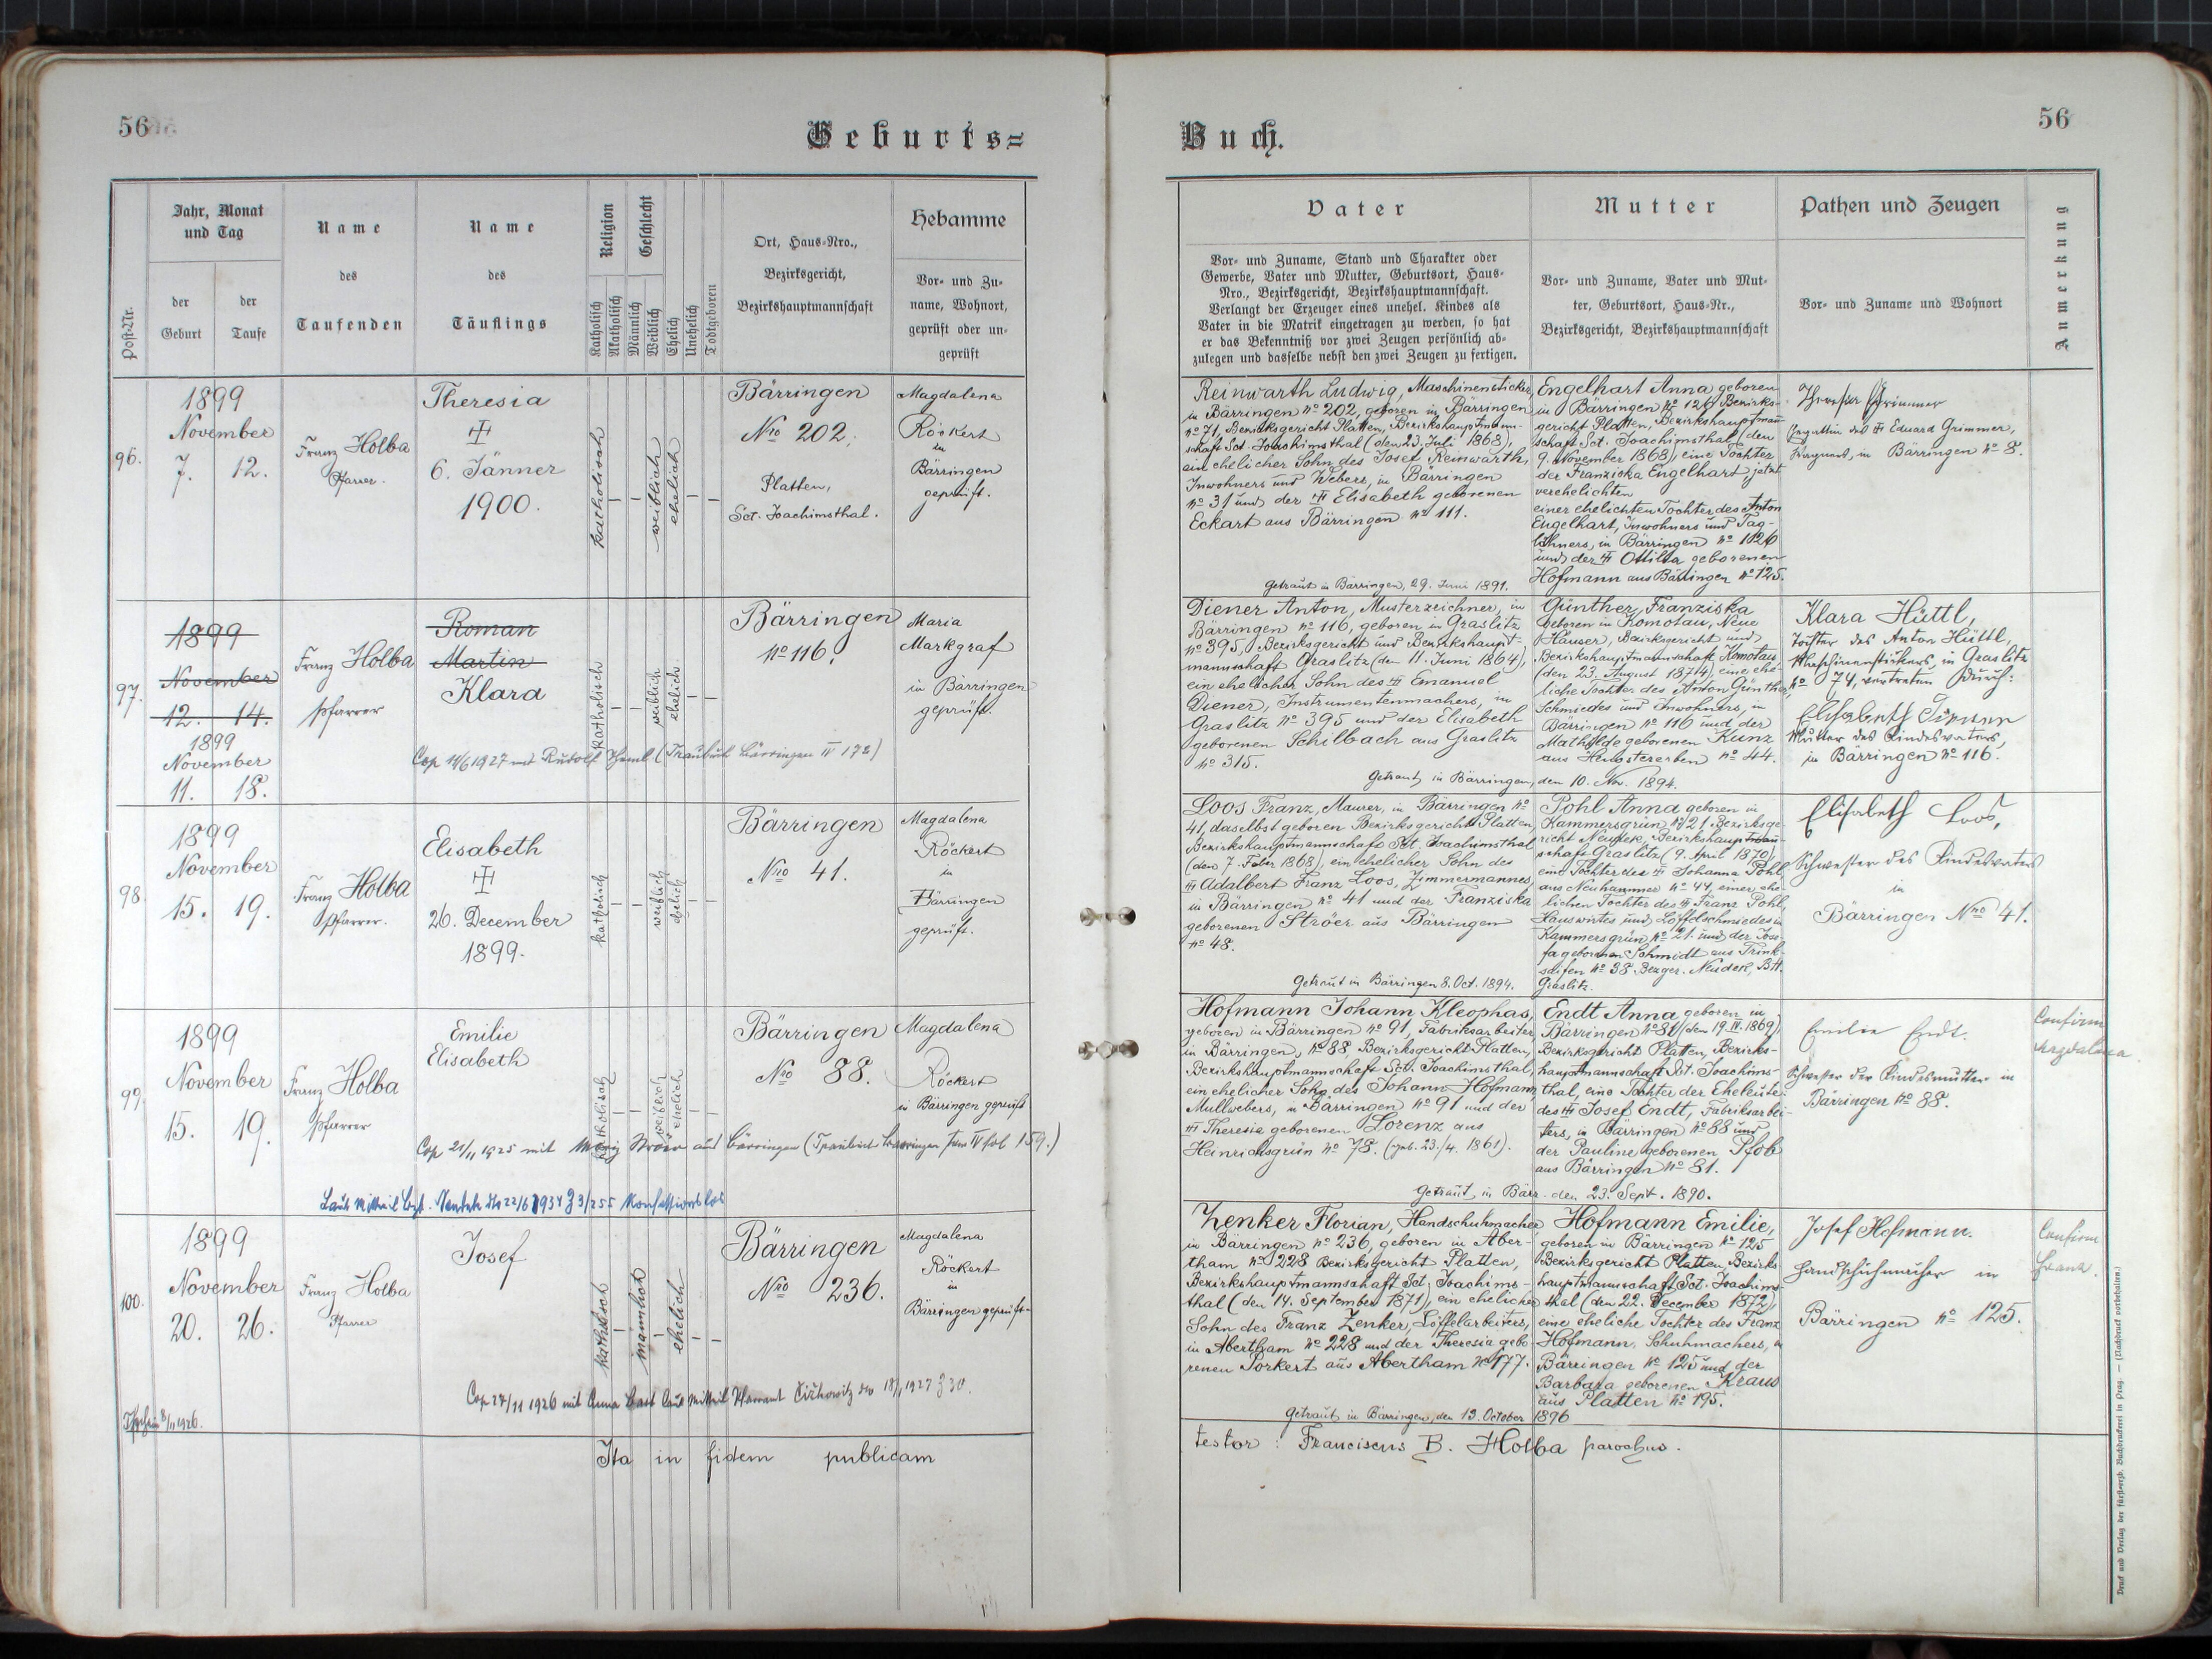 56
Geburts=
Jahr, Monat
und Tag
der
Geburt
der
Taufe
Post-Nr.
Name
des
Taufenden
Name
des
Täuflings
Religion
Katholisch
Akatholisch
Geschlecht
Männlich
Weiblich
Ehelich
Unehelich
Todtgeboren
Ort, Haus-Nro.,
Bezirksgericht,
Bezirkshauptmannschaft
Hebamme
Vor- und Zu-
name, Wohnort,
geprüft oder un-
geprüft
96.
1899
November
7. 12.
Franz Holba
Pfarrer.
Theresia
6. Jänner
1900.
katholisch
weiblich
ehelich
Bärringen
Nro 202,
Platten,
Sct. Joachimsthal.
Magdalena
Röckert
in
Bärringen
geprüft.
97.
1899
November
12. 14.
1899
November
11. 18.
Franz Holba
Pfarrer
Roman
Martin
Klara
katholisch
weiblich
ehelich.
Cop 14/6 1927 mit Rudolf (Traubuch Bärringen IV 172)
Bärringen
No 116.
Maria
Markgraf
in Bärringen
geprüft.
98.
1899
November
15. 19.
Franz Holba
Pfarrer.
Elisabeth
26. December
1899.
katholisch
weiblich
ehelich
Bärringen
Nro 41.
Magdalena
Röckert
in
Bärringen
geprüft.
99.
1899
November
15. 19.
Franz Holba
Pfarrer
Emilie
Elisabeth
katholisch
weiblich
ehelich
Cop 21/11 1925 mit aus Bärringen (Traubuch Bärringen Tom IV fol 159.)
Laut 22/6 1934 Z 3/255 konfessionslos
Bärringen
Nro 88.
Magdalena
Röckert
in Bärringen geprüft
100.
1899
November
20. 26.
Franz Holba
Pfarrer
Josef
katholisch
männlich
ehelich
Cop 27/11 1926 mit Anna laut Pfarramt 18/1 1927 Z 30.
8/11 1926.
Bärringen
Nro 236.
Magdalena
Röckert
in
Bärringen geprüft
Ita in fidem publicam
Buch.
56
Vater
Vor- und Zuname, Stand und Charakter oder
Gewerbe, Vater und Mutter, Geburtsort, Haus-
Nro., Bezirksgericht, Bezirkshauptmannschaft.
Verlangt der Erzeuger eines unehel. Kindes als
Vater in die Matrik eingetragen zu werden, so hat
er das Bekenntniß vor zwei Zeugen persönlich ab-
zulegen und dasselbe nebst den zwei Zeugen zu fertigen.
Mutter
Vor- und Zuname, Vater und Mut-
ter, Geburtsort, Haus-Nr.,
Bezirksgericht, Bezirkshauptmannschaft
Pathen und Zeugen
Vor- und Zuname und Wohnort
Anmerkung
Reinwarth Ludwig, Maschinensticker,
in Bärringen No 202, geboren in Bärringen
No 71, Bezirksgericht Platten, Bezirkshauptmann-
schaft Sct. Joachimsthal (den 23. Juli 1868),
ein ehelicher Sohn des Josef Reinwarth,
Inwohners und Webers, in Bärringen
No 31 und der Elisabeth geborenen
Eckart aus Bärringen No 111.
Getraut in Bärringen, 29. Juni 1891.
Engelhart Anna geboren
in Bärringen No 126 Bezirks-
gericht Platten, Bezirkshauptmann-
schaft Sct. Joachimsthal (den
9. November 1868), eine Tochter
der Franziska Engelhart, jetzt
verehelichten
einer ehelichten Tochter des Anton
Engelhart, Inwohners und Tag-
löhners, in Bärringen No 126
und der Ottilia geborenen
Hofmann aus Bärringen No 125.
Theresia Grimmer
Gattin des Eduard Grimmer,
in Bärringen No 8.
Diener Anton, Musterzeichner, in
Bärringen No 116, geboren in Graslitz
No 395, Bezirksgericht und Bezirkshaupt-
mannschaft Graslitz (den 11. Juni 1864),
ein ehelicher Sohn des Emanuel
Diener, Instrumentenmachers, in
Graslitz No 395 und der Elisabeth
geborenen Schilbach aus Graslitz
No 315.
Getraut in Bärringen, den 10. Nov. 1894.
Günther Franziska
geboren in Komotau, Neue
Häuser, Bezirksgericht und
Bezirkshauptmannschaft Komotau
(den 23. August 1874), eine ehe-
liche Tochter des Anton Günther
Schmiedes und Inwohners, in
Bärringen No 116 und der
Mathilde geborenen Kunz
aus Hengstererben No 44.
Klara Hüttl,
Tochter des Anton Hüttl,
Maschinenstickers, in Graslitz
No 74, vertreten durch:
Elisabeth Diener
Mutter des Kindesvaters,
in Bärringen No 116.
Loos Franz, Maurer, in Bärringen No
41, daselbst geboren Bezirksgericht Platten,
Bezirkshauptmannschaft Sct. Joachimsthal
(den 7. Feber 1868), ein ehelicher Sohn des
Adalbert Franz Loos, Zimmermannes
in Bärringen No 41 und der Franziska
geborenen Ströer aus Bärringen
No 48.
Getraut in Bärringen 8. Oct. 1894.
Pohl Anna geboren in
Kammersgrün No 21 Bezirksge-
richt Neudek, Bezirkshauptman-
schaft Graslitz (9. April 1870)
eine Tochter der Johanna Pohl
aus Neuhammer No 44, einer ehe-
lichen Tochter des Franz Pohl,
Hauswirtes und Löffelschmiedes in
Kammersgrün No 21. und der Jose-
fa geborenen Schmidt aus Trink-
saifen No 38 Bezger. Neudek, BH.
Graslitz.
Elisabeth Loos,
Schwester des Kindesvaters
in
Bärringen Nro 41.
Hofmann Johann Kleophas,
geboren in Bärringen No 91, Fabriksarbeiter,
in Bärringen, No 88 Bezirksgericht Platten,
Bezirkshauptmannschaft Sct. Joachimsthal,
ein ehelicher Sohn des Johann Hofmann,
Mullwebers, in Bärringen No 91 und der
Theresia geborenen Lorenz aus
Heinrichsgrün No 78. (geb. 23./4. 1861).
Getraut in Bärr. den 23. Sept. 1890.
Endt Anna geboren in
Bärringen No 81 (den 19. IV. 1869)
Bezirksgericht Platten, Bezirks-
hauptmannschaft Sct. Joachims-
thal, eine Tochter der Eheleute:
des Josef Endt, Fabriksarbei-
ters, in Bärringen No 88 und
der Pauline geborenen Pfob
aus Bärringen No 81.
Emilie Endt.
Schwester der Kindesmutter in
Bärringen No 88.
Confirm
Magdalena
Zenker Florian, Handschuhmacher
in Bärringen No 236, geboren in Aber-
tham No 228 Bezirksgericht Platten,
Bezirkshauptmannschaft Sct. Joachims-
thal (den 14. September 1871), ein ehelicher
Sohn des Franz Zenker, Löffelarbeiters,
in Abertham No 228 und der Theresia gebo-
renen Porkert aus Abertham No 177.
Getraut in Bärringen, den 13. October 1896
Hofmann Emilie,
geboren in Bärringen No 125
Bezirksgericht Platten, Bezirks-
hauptmannschaft Sct. Joachims-
thal (den 22. December 1872),
eine eheliche Tochter des Franz
Hofmann, Schuhmachers, in
Bärringen No 125 und der
Barbara geborenen Kraus
aus Platten No 195.
Josef Hofmann.
Handschuhmacher in
Bärringen No 125.
Confirm
Franz.
testor: Franciscus B. Holba parochus.
Druck und Verlag der fürsterzb. Buchdruckerei in Prag. — (Nachdruck vorbehalten.)